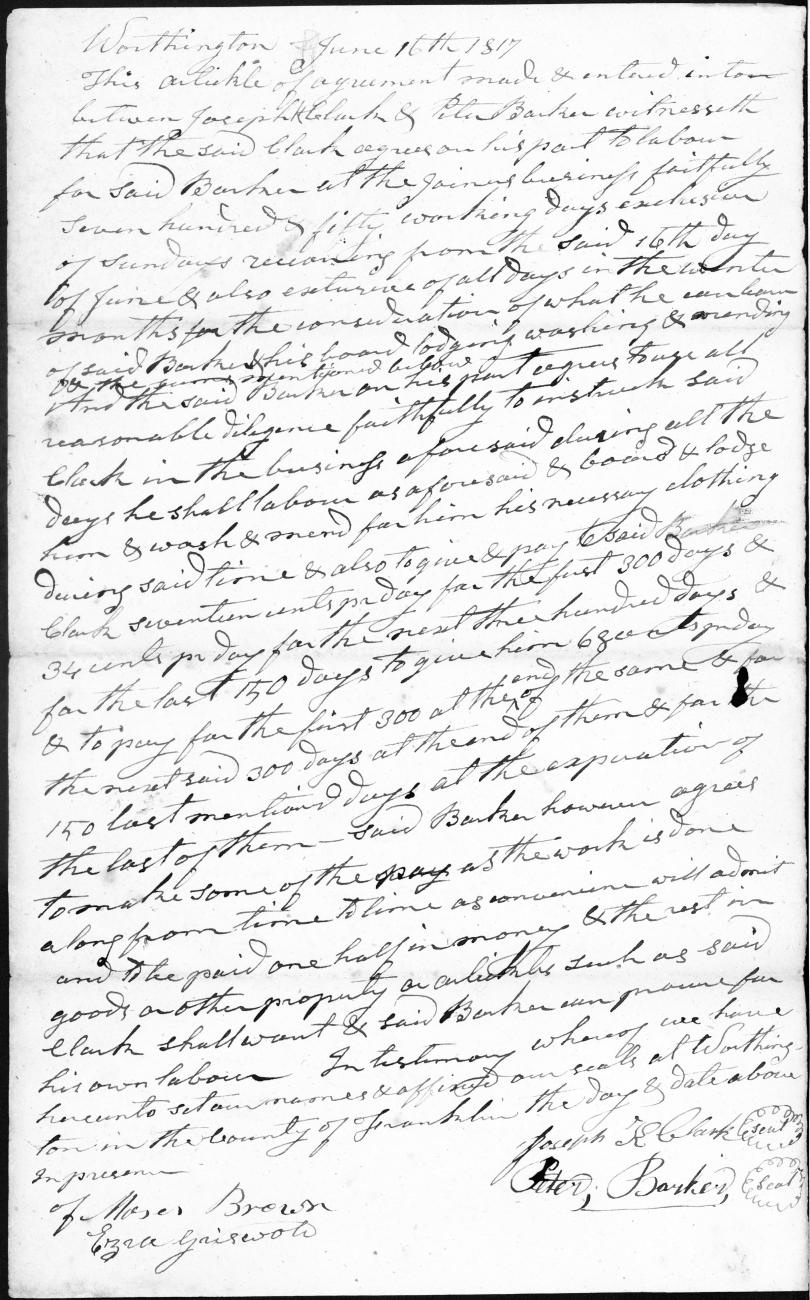 Worthington June 16th 1817
This artickle of agreement made & entered into
between Joseph K Clark & Peter Barker witnesseth
that the said Clark agrees on his part to labour
for said Barker at the Joiners business faitfully
seven hundred & fifty working days exclusive
of sundays recconing from the said 16th day
of June & also exclusive of all days in the winter
months for the consideration of what he can learn
of said Barker & his board lodging washing & mending
& the sums mentioned below
And the said Barker on his part agrees to use all
reasonable diligence faithfully to instruck said
Clark in the business aforesaid during all the
days he shall labour as aforesaid & board & lodge
him & wash & mend for him his necessay clothing
during said time & also to give & pay to said Barker
Clark seventeen cents pr day for the first 300 days &
34 cents pr day for the next three hundred days &
for the last 150 days to give him 68 cents pr day
& to pay for the first 300 at the end of the same & for
the next said 300 days at the end of them & for the
150 last mentiond days at the expiration of
the last of them – said Barker however agrees
to make some of the pay as the work is done
along from time to time as convenience will admit
and to be paid one half in money & the rest in
goods or other property or artickles such as said
Clark shall want & said Barker can procure for
his own labour In testimony whereof we have
hereunto set our names & affixed our seals at Worthing-
ton in the County of Franklin the day & date above
In presence
Joseph K Clark seal
Peter, Barker, seal
of Moses Brown
Ezra Griswold